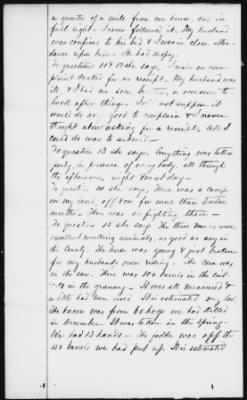 a quarter of a mile from our house, and in
full sight. I never followed it. My husband
was confined to his bed & I was in close atten-
dance upon him. He had dropsy.
To question 11 & 12 she says. I made no com-
plaint & asked for no receipt. My husband was
ill, & I had no son, to, or overseer to
look after things. I did not suppose it
would do any good to complain & I never
thought about asking for a receipt. All I
could do was to submit
To question 13 she says. Everything was taken
openly, in presence of everybody, all through
the afternoon, night & next day
To question 14 she says, There was a camp
on my land, off & on for more than twelve
months. There was no fighting there
To question 15 she says The three mules were
excellent working animals, as good as any in
the County. The horse was young & just broken
for my husband's own riding. The corn was
in the ear. There was 100 barrels in the
in the granary. It was all measured &
a little had been used. It is estimated
The bacon was from 60 hogs we had killed
in December. It was taken in the spring.
We had 13 hands. The fodder was off the
100 barrels we had put up. It is estimated